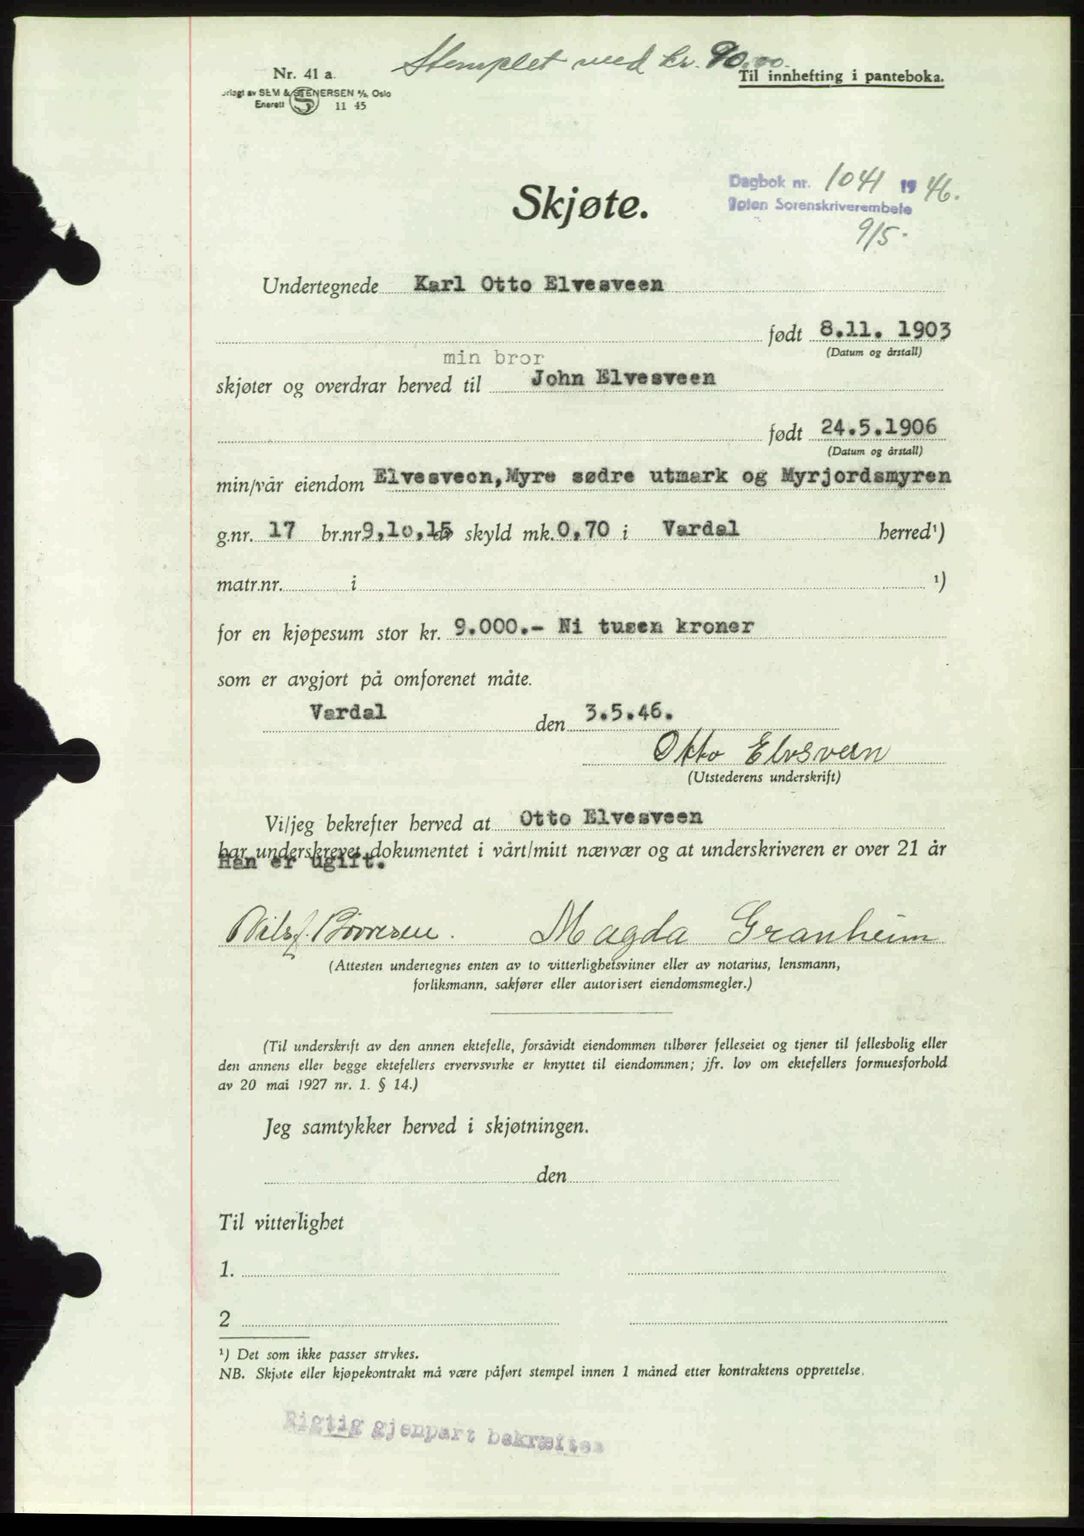 Stemplet med kr. 90.00.
Nr. 41 a.
Til innhefting i panteboka.
SEM & STENERSEN A/S, Oslo
Enerett 11 45
Dagbok nr. 1041 1946.
Toten Sorenskriverembete
9/5.
Skjøte.
Undertegnede Karl Otto Elvesveen
født 8.11. 1903
(Datum og årstall)
min bror
skjøter og overdrar herved til John Elvesveen
født 24.5.1906
(Datum og årstall)
min/vår eiendom Elvesveen, Myre sødre utmark og Myrjordsmyren
g.nr. 17 br.nr 9,10,15 skyld mk. 0,70 i Vardal herred¹)
matr.nr. i ¹)
for en kjøpesum stor kr. 9.000.- Ni tusen kroner
som er avgjort på omforenet måte.
Vardal den 3.5.46.
Otto Elvsveen
(Utstederens underskrift)
Vi/jeg bekrefter herved at Otto Elvesveen
har underskrevet dokumentet i vårt/mitt nærvær og at underskriveren er over 21 år
Han er ugift.
Nils J. Børresen. Magda Granheim
(Attesten undertegnes enten av to vitterlighetsvitner eller av notarius, lensmann,
forliksmann, sakfører eller autorisert eiendomsmegler.)
(Til underskrift av den annen ektefelle, forsåvidt eiendommen tilhører felleseiet og tjener til fellesbolig eller
den annens eller begge ektefellers ervervsvirke er knyttet til eiendommen; jfr. lov om ektefellers formuesforhold
av 20 mai 1927 nr. 1. § 14.)
Jeg samtykker herved i skjøtningen.
den
Til vitterlighet
1.
2
¹) Det som ikke passer strykes.
NB. Skjøte eller kjøpekontrakt må være påført stempel innen 1 måned etter kontraktens opprettelse.
Rigtig gjenpart bekræftes